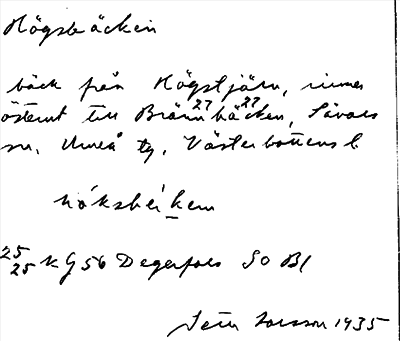 Högsbäcken
bäck från Högstjärn, rinner
österut till Brännbäcken, Sävars
sn, Umeå tg, Västerbottens l.
hö́ksbéiken
25 25 K G 56 Degerfors SO Bl
1935